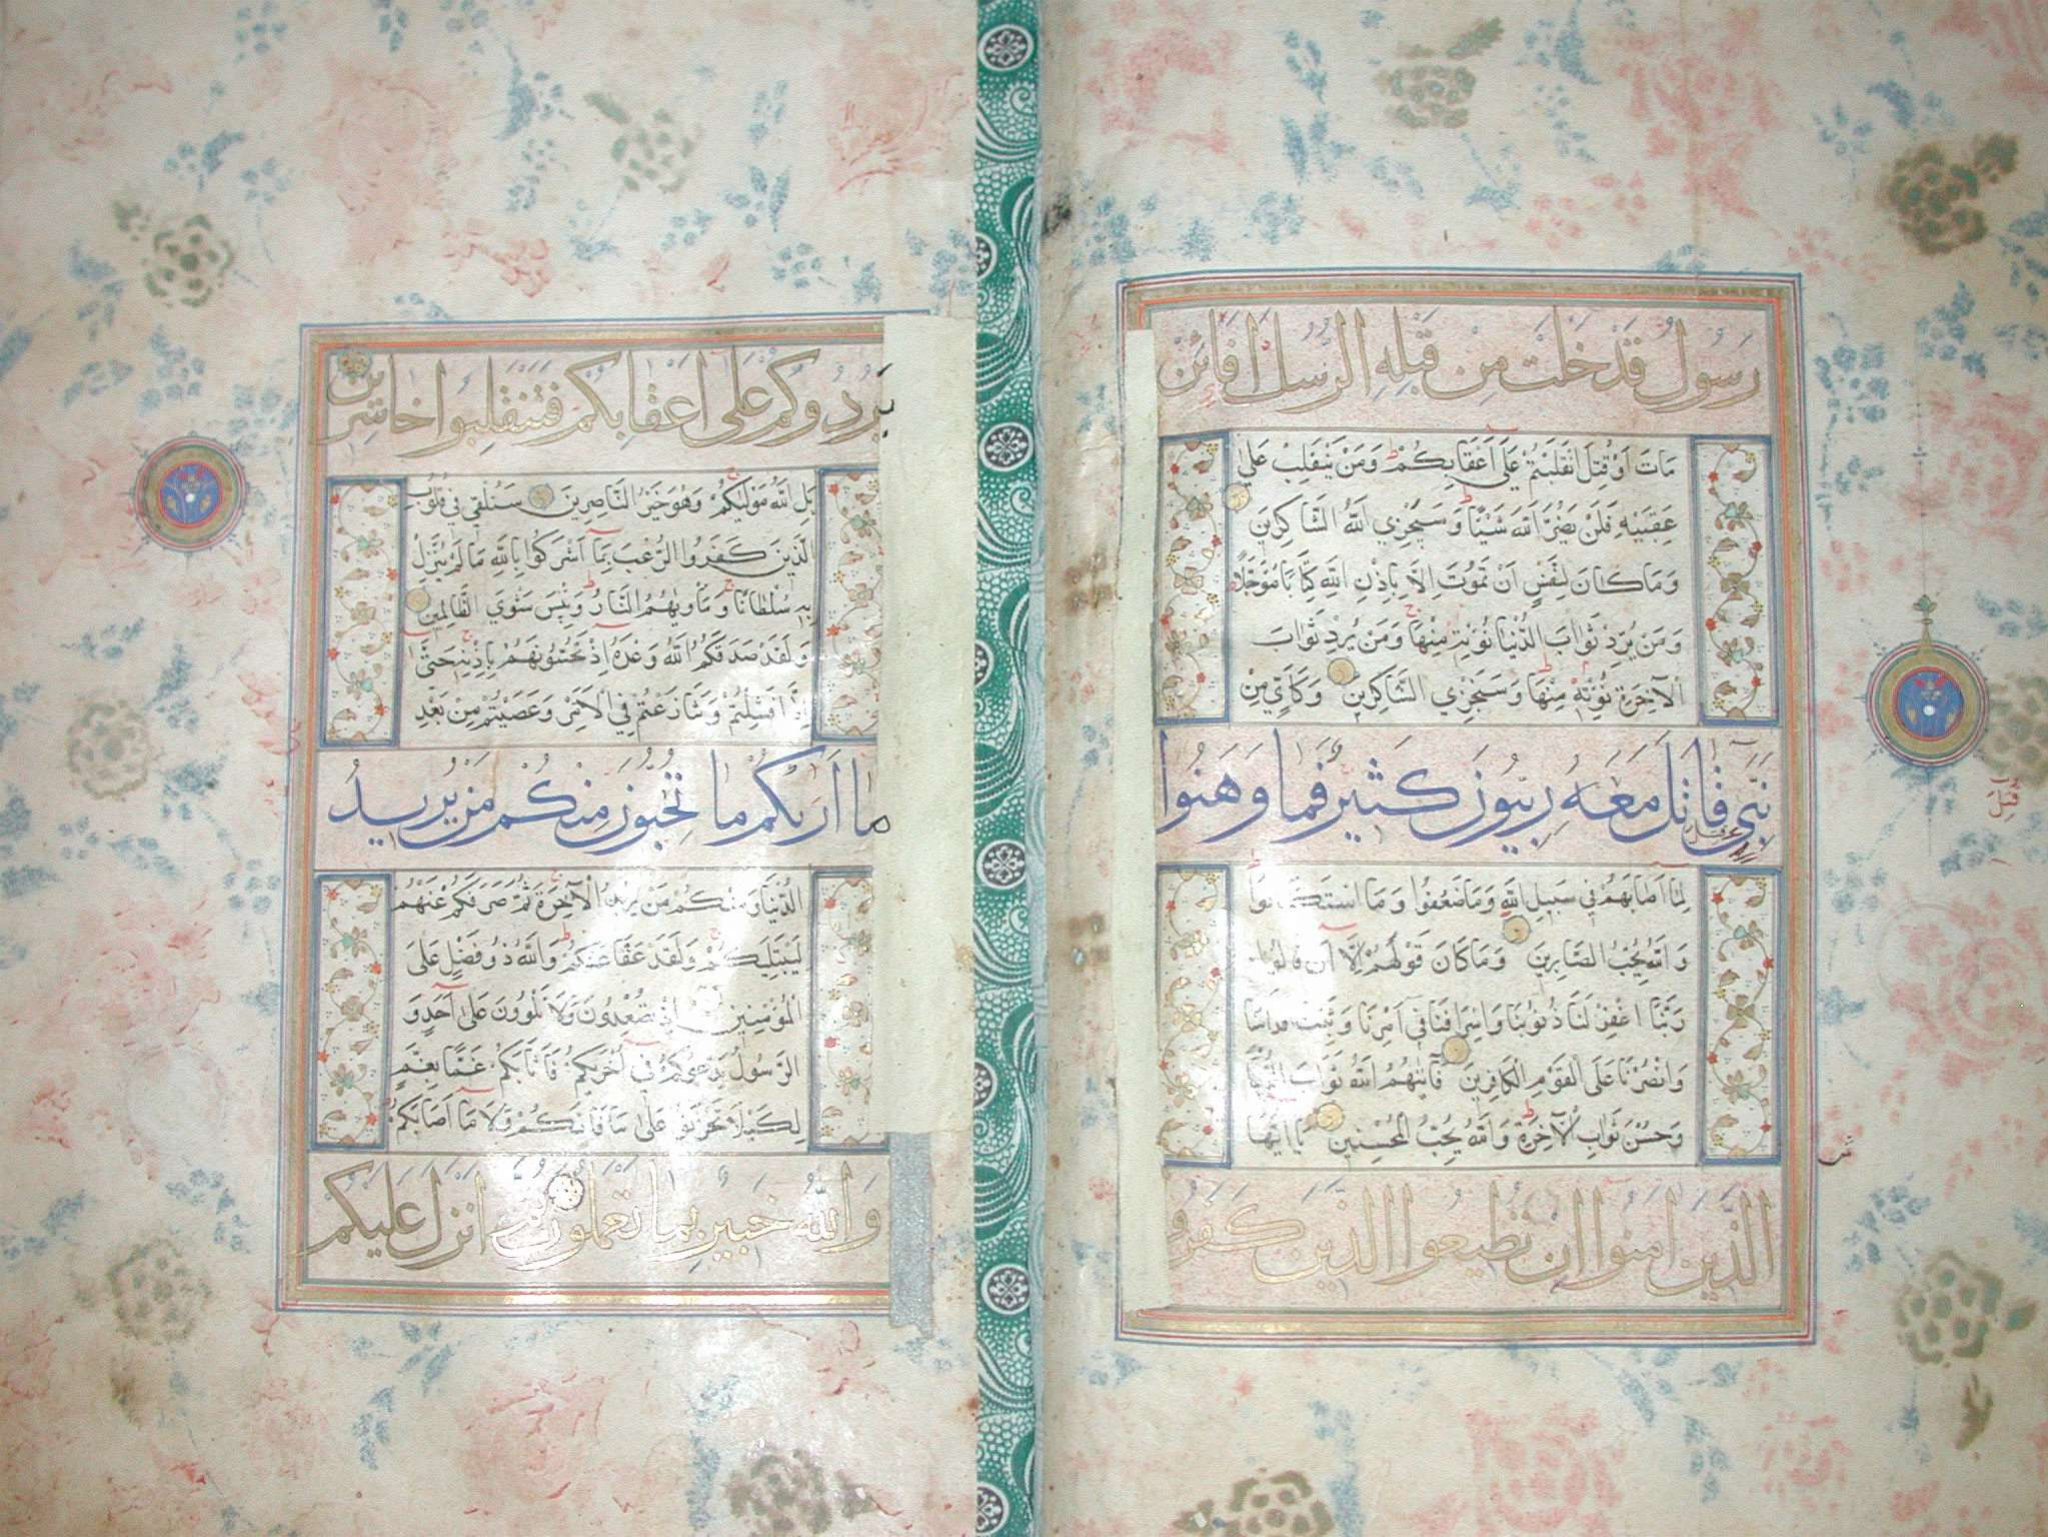 رَسُولٌ قَدْ خَلَتْ مِنْ قَبْلِهِ الرُّسُلُ اَفَائِنْ
مَاتَ اَوْ قُتِلَ انْقَلَبْتُمْ عَلَى اَعْقَابِكُمْ وَمَنْ يَنْقَلِبْ عَلَى
عَقِبَيْهِ فَلَنْ يَضُرَّ اللّٰهَ شَيْئًا وَسَيَجْزِي اللّٰهُ الشَّاكِرِينَ
وَمَا كَانَ لِنَفْسٍ اَنْ تَمُوتَ اِلَّا بِاِذْنِ اللّٰهِ كِتَابًا مُؤَجَّلًا
وَمَنْ يُرِدْ ثَوَابَ الدُّنْيَا نُؤْتِهِ مِنْهَا وَمَنْ يُرِدْ ثَوَابَ
الْآخِرَةِ نُؤْتِهِ مِنْهَا وَسَنَجْزِي الشَّاكِرِينَ وَكَاَيِّنْ مِنْ
نَبِيٍّ قَاتَلَ مَعَهُ رِبِّيُّونَ كَثِيرٌ فَمَا وَهَنُوا
لِمَا اَصَابَهُمْ فِي سَبِيلِ اللّٰهِ وَمَا ضَعُفُوا وَمَا اسْتَكَانُوا
وَاللّٰهُ يُحِبُّ الصَّابِرِينَ وَمَا كَانَ قَوْلَهُمْ اِلَّا اَنْ قَالُوا
رَبَّنَا اغْفِرْ لَنَا ذُنُوبَنَا وَاِسْرَافَنَا فِي اَمْرِنَا وَثَبِّتْ اَقْدَامَنَا
وَانْصُرْنَا عَلَى الْقَوْمِ الْكَافِرِينَ فَآتٰيهُمُ اللّٰهُ ثَوَابَ الدُّنْيَا
وَحُسْنَ ثَوَابِ الْآخِرَةِ وَاللّٰهُ يُحِبُّ الْمُحْسِنِينَ يَا اَيُّهَا
الَّذِينَ اٰمَنُوا اِنْ تُطِيعُوا الَّذِينَ كَفَرُوا
يَرُدُّوكُمْ عَلَى اَعْقَابِكُمْ فَتَنْقَلِبُوا خَاسِرِينَ
بَلِ اللّٰهُ مَوْلٰيكُمْ وَهُوَ خَيْرُ النَّاصِرِينَ سَنُلْقِي فِي قُلُوبِ
الَّذِينَ كَفَرُوا الرُّعْبَ بِمَا اَشْرَكُوا بِاللّٰهِ مَا لَمْ يُنَزِّلْ
بِهِ سُلْطَانًا وَمَاْوٰيهُمُ النَّارُ وَبِئْسَ مَثْوَى الظَّالِمِينَ
وَلَقَدْ صَدَقَكُمُ اللّٰهُ وَعْدَهُ اِذْ تَحُسُّونَهُمْ بِاِذْنِهِ حَتَّى
اِذَا فَشِلْتُمْ وَتَنَازَعْتُمْ فِي الْاَمْرِ وَعَصَيْتُمْ مِنْ بَعْدِ
مَا اَرٰيكُمْ مَا تُحِبُّونَ مِنْكُمْ مَنْ يُرِيدُ
الدُّنْيَا وَمِنْكُمْ مَنْ يُرِيدُ الْآخِرَةَ ثُمَّ صَرَفَكُمْ عَنْهُمْ
لِيَبْتَلِيَكُمْ وَلَقَدْ عَفَا عَنْكُمْ وَاللّٰهُ ذُو فَضْلٍ عَلَى
الْمُؤْمِنِينَ اِذْ تُصْعِدُونَ وَلَا تَلْوُونَ عَلَى اَحَدٍ وَ
الرَّسُولُ يَدْعُوكُمْ فِي اُخْرٰيكُمْ فَاَثَابَكُمْ غَمًّا بِغَمٍّ
لِكَيْلَا تَحْزَنُوا عَلَى مَا فَاتَكُمْ وَلَا مَا اَصَابَكُمْ
وَاللّٰهُ خَبِيرٌ بِمَا تَعْمَلُونَ ثُمَّ اَنْزَلَ عَلَيْكُمْ